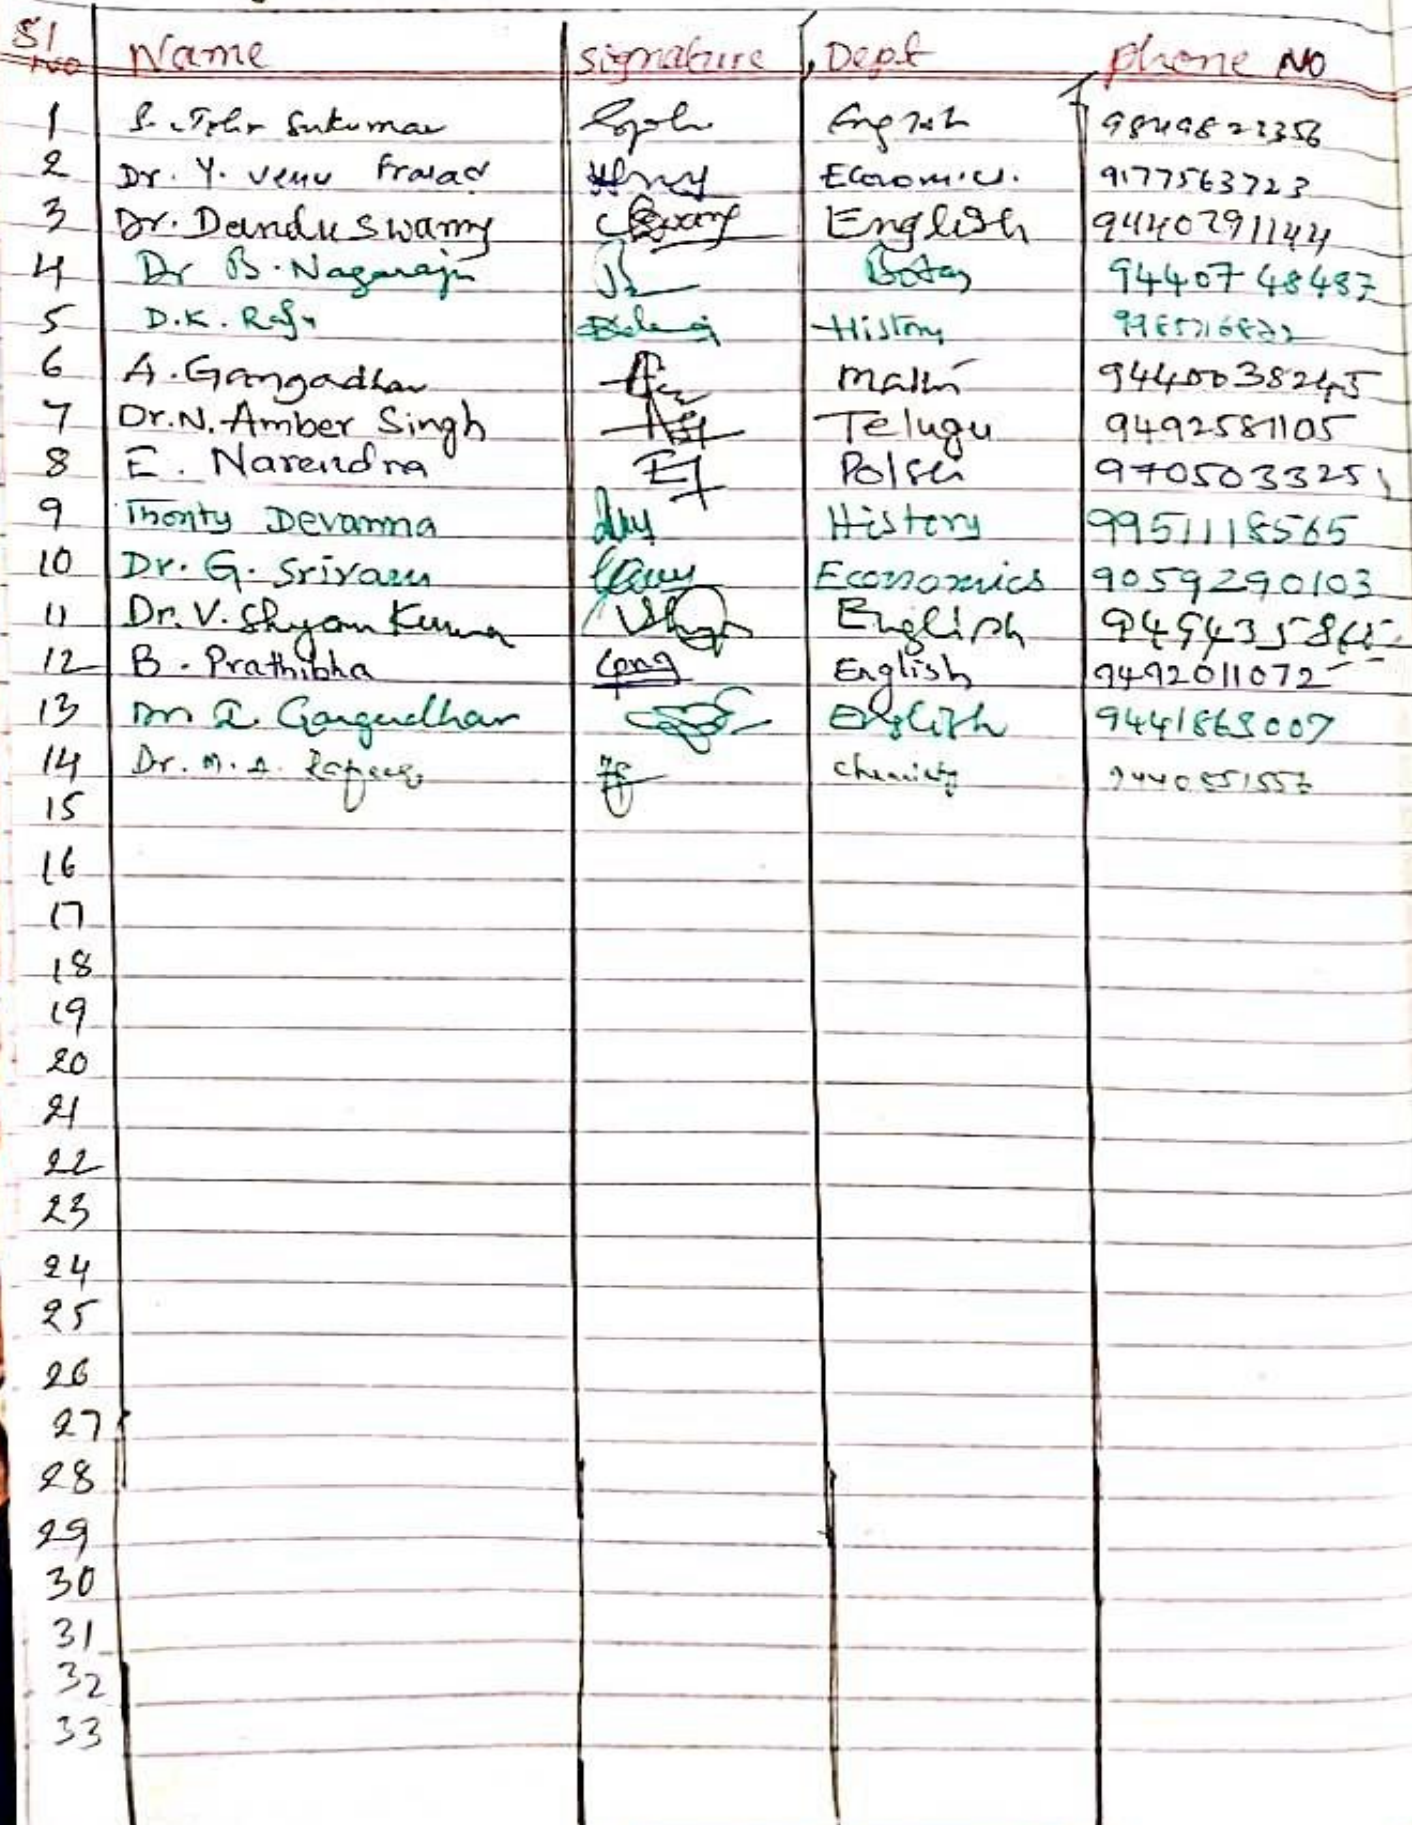 Sl No Name signature Dept phone NO
1 S. John Sukumar English
2 Dr. Y. Venu Prasad Economics. 9177563723
3 Dr. Dandu Swamy English 9440291144
4 Dr B. Nagaraju Botany 9440748487
5 D.K. Raju History
6 A. Gangadhar Maths 9440038245
7 Dr. N. Amber Singh Telugu 9492581105
8 E. Narendra Pol Sci 9705033251
9 Thonty Devanna History 9951118565
10 Dr. G. Srivam Economics 9059290103
11 Dr. V. Shyam Kumar English
12 B. Prathibha English 9492011072
13 Gangadhar English 9441868007
14 Dr. M. A. Chemistry
15
16
17
18
19
20
21
22
23
24
25
26
27
28
29
30
31
32
33